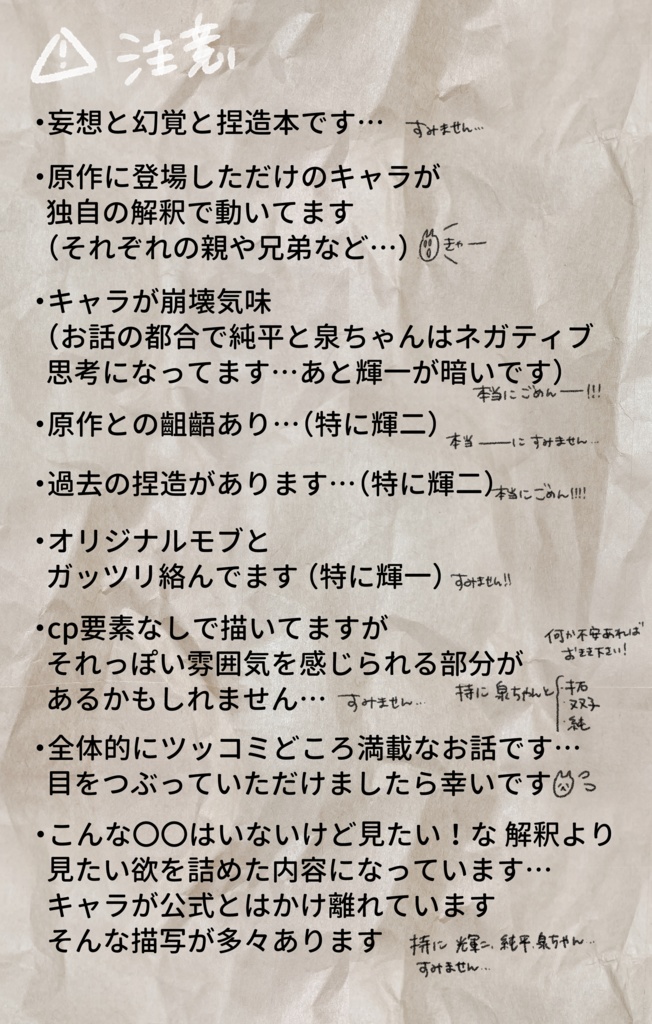 注意
・妄想と幻覚と捏造本です…
すみません…
・原作に登場しただけのキャラが
独自の解釈で動いてます
(それぞれの親や兄弟など…)
きゃー
・キャラが崩壊気味
(お話の都合で純平と泉ちゃんはネガティブ
思考になってます…あと輝一が暗いです)
本当にごめんー!!!
・原作との齟齬あり…(特に輝二)
本当ーにすみません…
・過去の捏造があります…(特に輝二)
本当にごめん!!!!
・オリジナルモブと
ガッツリ絡んでます (特に輝一)
すみません!!
・cp要素なしで描いてますが
それっぽい雰囲気を感じられる部分が
あるかもしれません…
すみません…
何か不安あれば
おきき下さい!
特に 泉ちゃんと
拓
双子
純
・全体的にツッコミどころ満載なお話です…
目をつぶっていただけましたら幸いです
・こんな〇〇はいないけど見たい!な 解釈より
見たい欲を詰めた内容になっています…
キャラが公式とはかけ離れています
そんな描写が多々あります
特に 輝二、純平、泉ちゃん…
すみません…